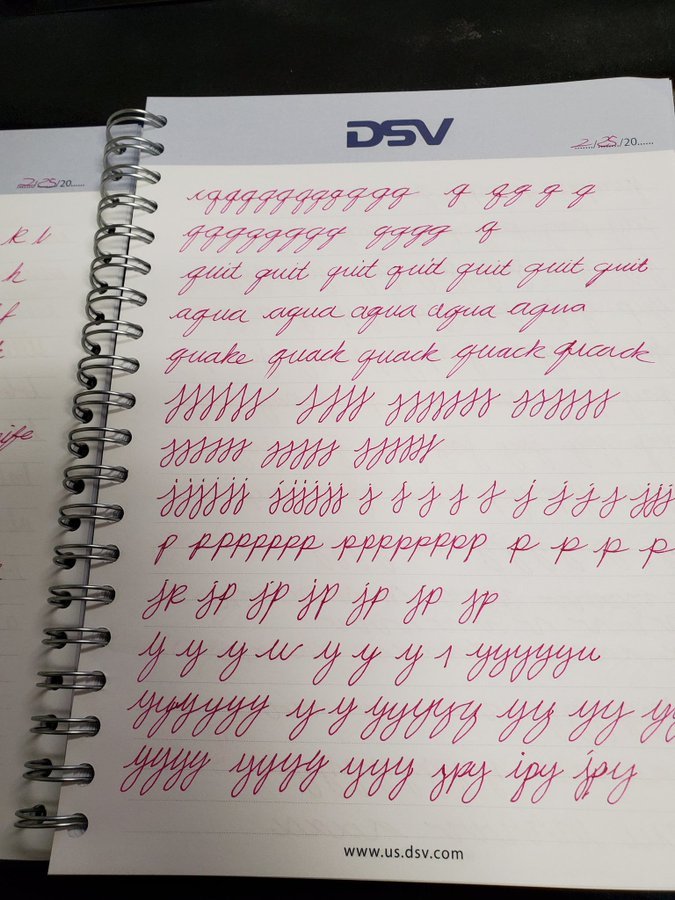 DSV
2/25/20......
2/25/20......
qqqqqqqqqqq q qq q q
qqqqqqqq qqqq q
quit quit quit quit quit quit quit
aqua aqua aqua aqua aqua
quake quack quack quack quack
jjjjjj jjjj jjjjjjj jjjjjj
jjjjjj jjjjj jjjjjj
jjjjjj jjjjjj j j j j j j j j j jjj
p ppppppp pppppppp p p p p
jp jp jp jp jp jp jp
y y y y y y yyyyyy
yyyyyy y y yyyyy yy yy yy
yyyy yyyy yyy jpy jpy jpy
k l
h
www.us.dsv.com